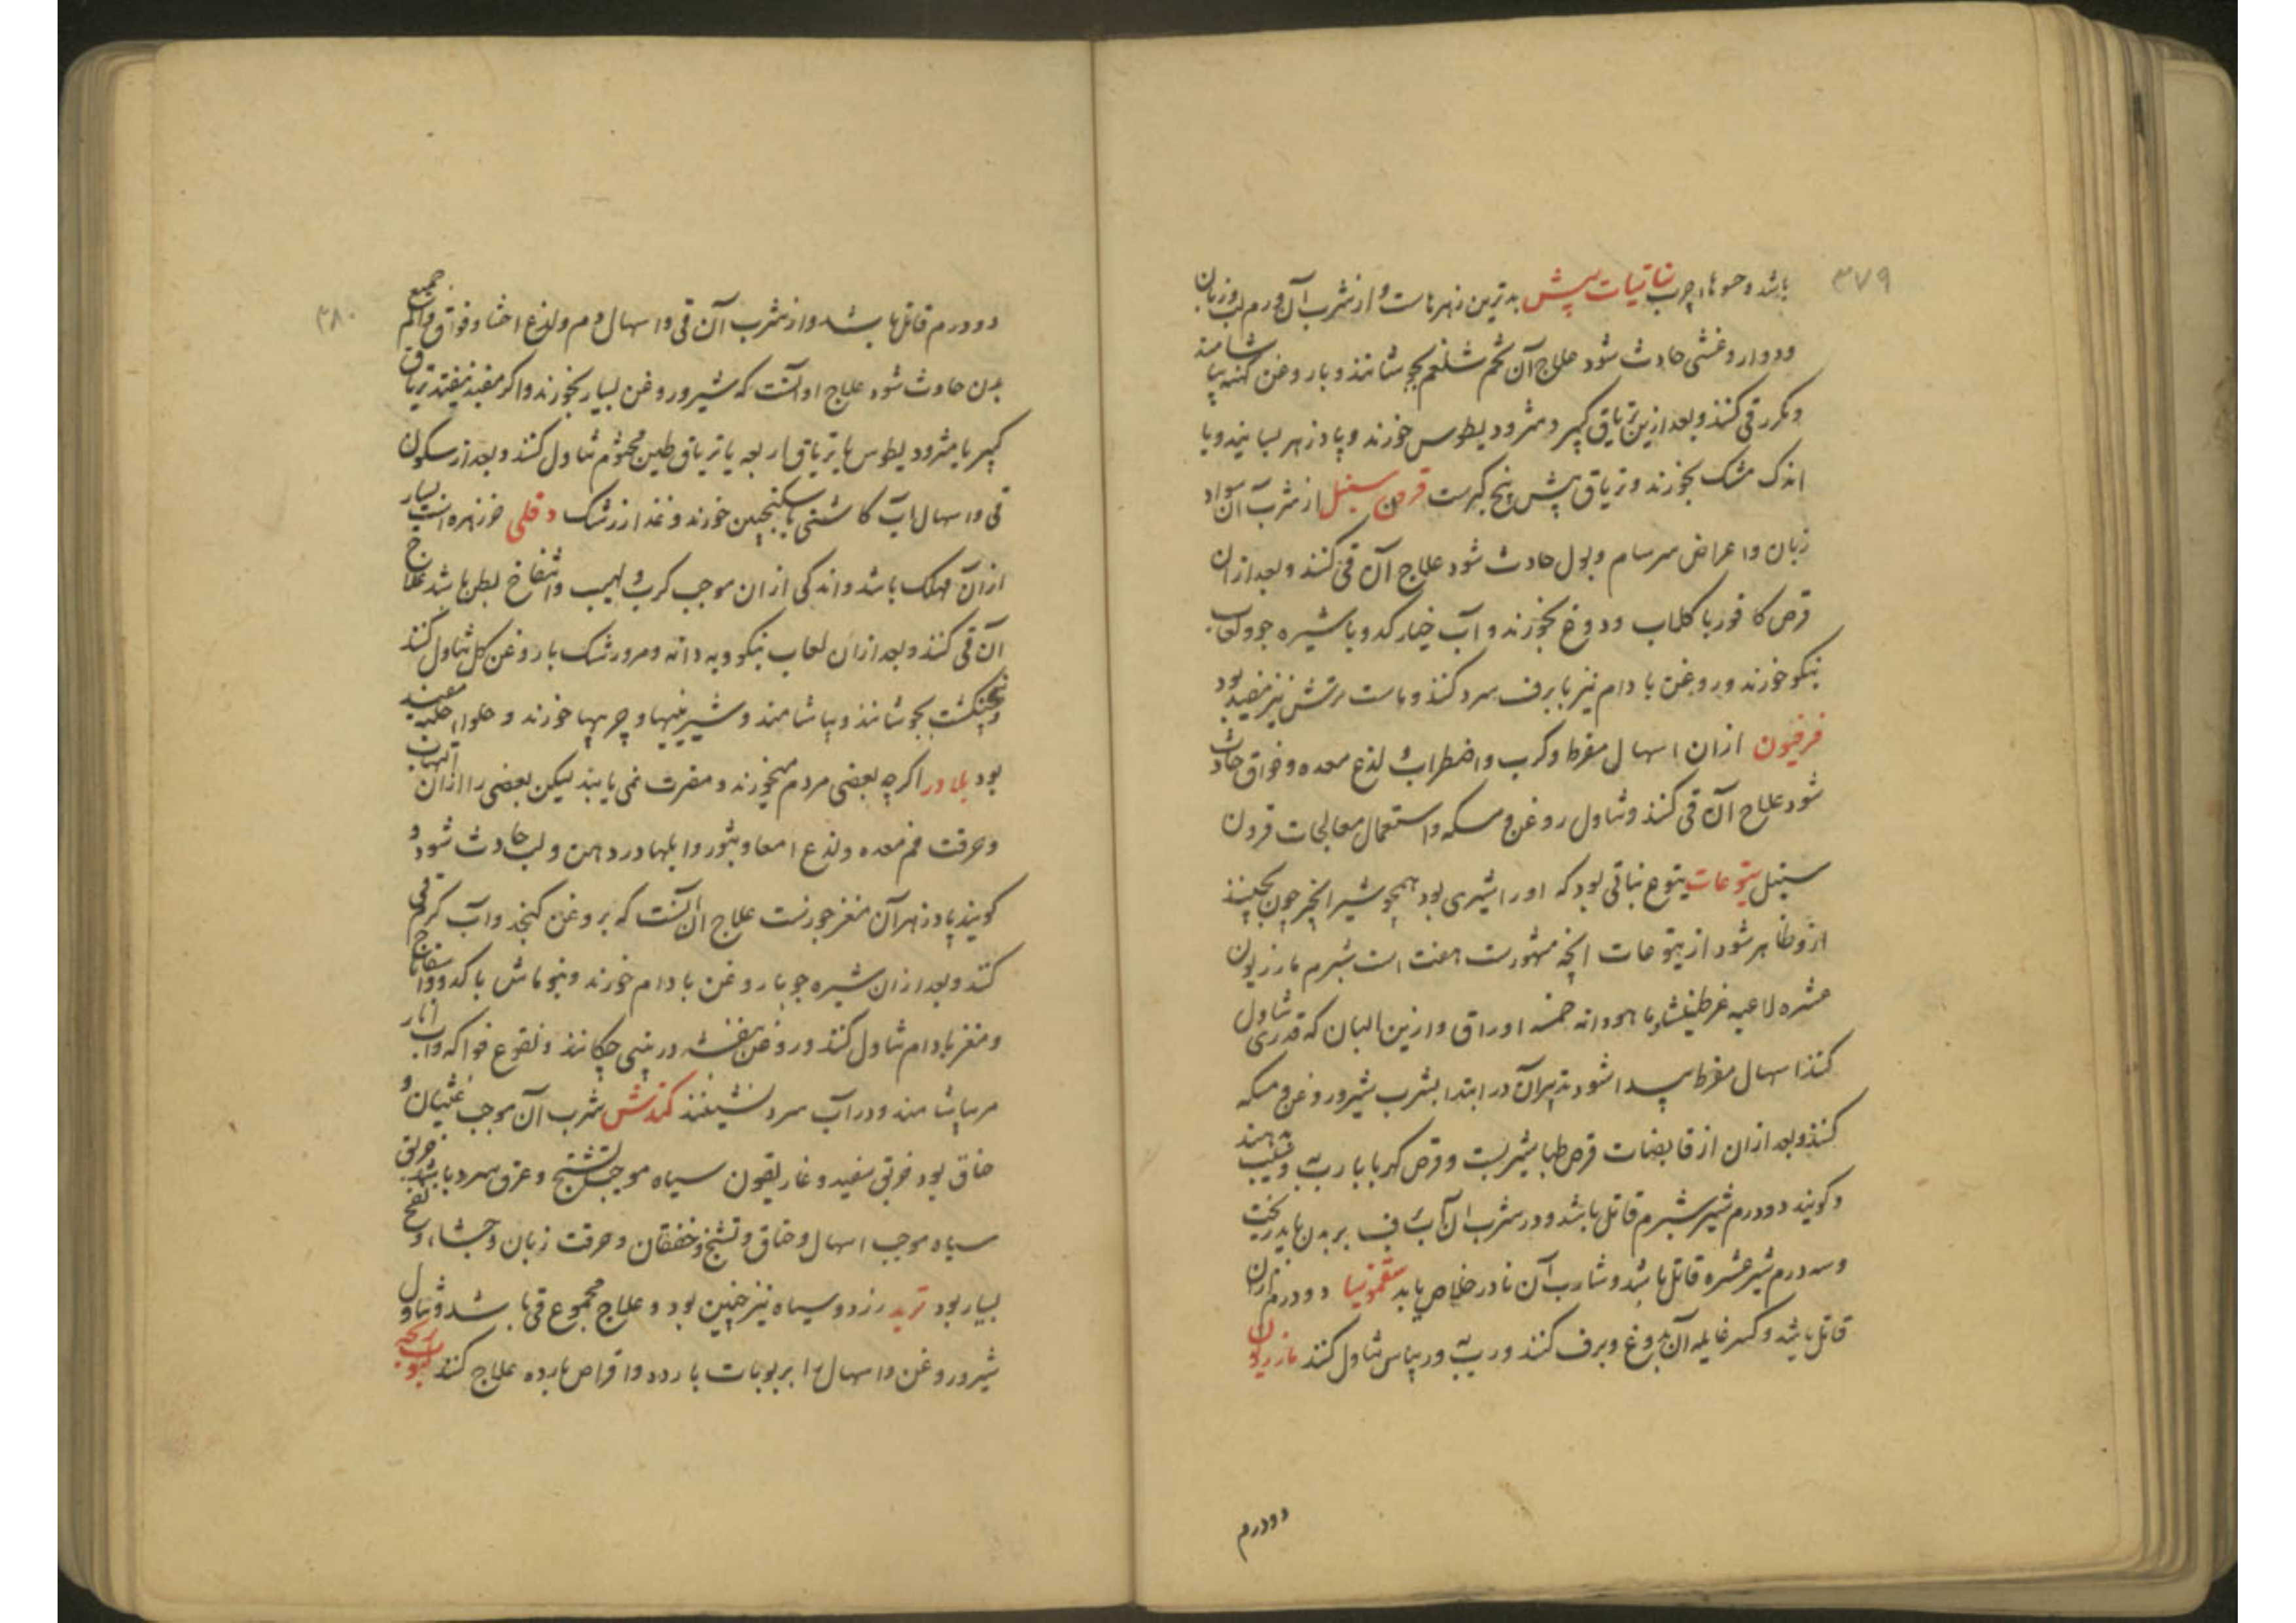 ۳۷۹
باشد و حسوهاء چرب نباتیات بیش بدترین زهرهاست و از شرب آن ورم لب و زبان
و دوار و غشی حادث شود علاج آن تخم شلغم بجوشانند و با روغن کهنه بیاشامند
و مکرر قی کنند و بعد ازین تریاق کبیر و مثرودیطوس خورند و پادزهر بسایند و با
اندک مشک بخورند و تریاق بیش بیخ کبرست قرون سنبل از شرب آن سواد
زبان و اعراض سرسام و بول حادث شود علاج آن قی کنند و بعد از آن
قرص کافور با کلاب و دوغ بخورند و آب خیار کدو با شیره جو و لعاب
نیکو خورند و روغن بادام نیز با برف سرد کنند و ماست ترش نیز مفید بود
فرفیون از آن اسهال مفرط و کرب و اضطراب لذع معده و فواق حادث
شود علاج آن قی کنند و تناول روغن و مسکه و استعمال معالجات قرون
سنبل یتوعات یتوع نباتی بود که او را شیری بود همچو شیر انجیر چون بچینند
ازو ظاهر شود از یتوعات انچه مشهورست هفت است شبرم مازریون
عشره لاعیه عرطنیثا ماهودانه خمسه اوراق و ازین البان که قدری تناول
کنند اسهال مفرط پیدا شود تدبیر آن در ابتدا بشرب شیر و روغن و مسکه
کنند و بعد از آن از قابضات قرص طباشیر بست و قرص کهربا با رب و سیب بدهند
و کویند دو درم شیر شبرم قاتل باشد و در شرب آن آب برف بر بدن باید ریخت
و سه درم شیر عشره قاتل باشد و شارب آن نادر خلاص یابد سقمونیا دو درم از آن
قاتل باشد و کسر غایله آن بدوغ و برف کنند و رب به و ریباس تناول کنند مازریون
دو درم
۳۸۰
دو درم قاتل باشد و از شرب آن قی و اسهال دم و لذع احشا و فواق و الم جمیع
بدن حادث شود علاج او آنست که شیر و روغن بسیار بخورند و اکر مفید نیفتد تریاق
کبیر یا مثرودیطوس یا تریاق اربعه یا تریاق طین مختوم تناول کنند و بعد از سکون
قی و اسهال آب کاسنی با سکنجبین خورند و غذا زرشک دفلی خرزهره است بسیار
از آن مهلک باشد و اندکی از آن موجب کرب و لهیب و انتفاخ بطن باشد علاج
آن قی کنند و بعد از آن لعاب نیکو و بهدانه و مرورشک با روغن کل تناول کنند
و پنجنکشت بجوشانند و بیاشامند و شیرینیها و چربیها خورند و حلواء حلبه مفید
بود بلادر اکرچه بعضی مردم میخورند و مضرت نمی یابند لیکن بعضی را از آن التهاب
و حرقت فم معده و لذع امعا و بثور و ابلها در دهن و لب حادث شود و
کویند پادزهر آن مغز جوزست علاج آن آنست که بروغن کنجد و آب کرم قی
کنند و بعد از آن شیره جو با روغن بادام خورند و نخو ماش با کدو و اسفاناج
و مغز بادام تناول کنند و روغن بنفشه در بینی چکانند و نقوع فواکه و آب انار
مر بیاشامند و در آب سرد نشینند کندش شرب آن موجب غثیان و
خناق بود خربق سفید و غاریقون سیاه موجب تشنج و عرق سرد باشد خربق
سیاه موجب اسهال و خناق و تشنج و خفقان و حرقت زبان و جشاء و نفخ
بسیار بود تربد زرد و سیاه نیز چنین بود و علاج مجموع قی باشد و تناول
شیر و روغن و اسهال را بربوبات بارده و اقراص بارده علاج کنند